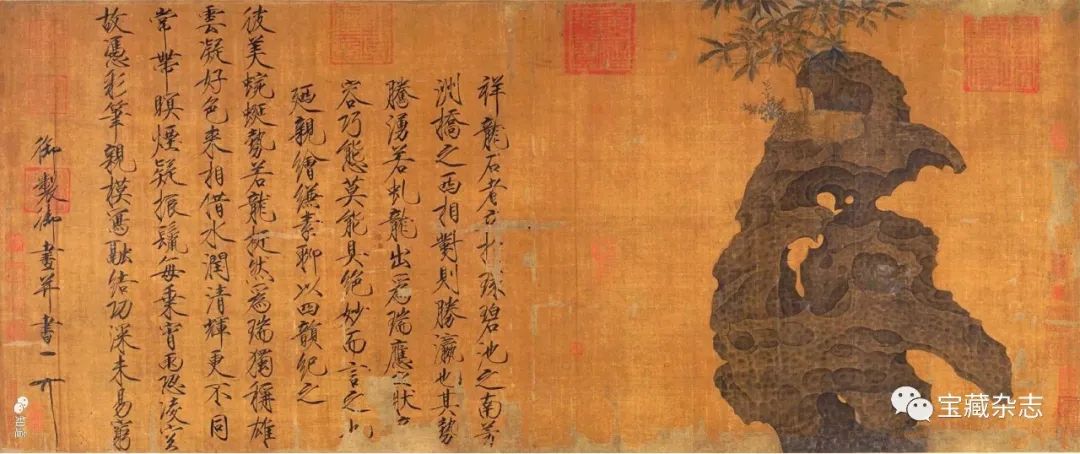 祥龍石者立於環碧池之南芳
洲橋之西相對則勝瀛也其勢
騰湧若虬龍出爲瑞應之狀奇
容巧態莫能具絕妙而言之也
廼親繪縑素聊以四韻紀之
彼美蜿蜒勢若龍挺然爲瑞獨稱雄
雲凝好色來相借水潤清輝更不同
常帶暝煙疑振鬣每乘宵雨恐凌空
故憑彩筆親模寫融結功深未易窮
御製御畫并書
宝藏杂志